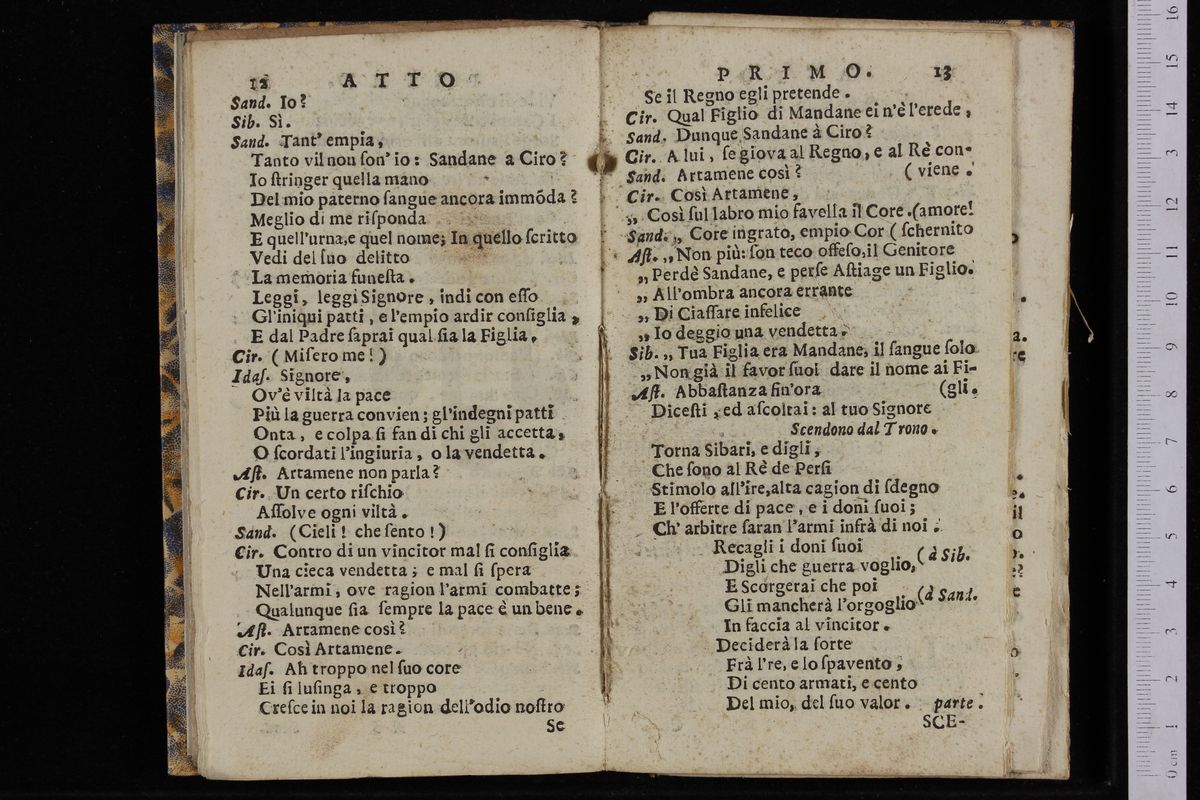 12 ATTO
Sand. Io?
Sib. Sì.
Sand. Tant' empia,
Tanto vil non ſon' io: Sandane a Ciro?
Io ſtringer quella mano
Del mio paterno ſangue ancora immóda?
Meglio di me riſponda
E quell'urna,e quel nome; In quello ſcritto
Vedi del ſuo delitto
La memoria funeſta.
Leggi, leggi Signore, indi con eſſo
Gl'iniqui patti, e l'empio ardir conſiglia,
E dal Padre ſaprai qual ſia la Figlia.
Cir. (Miſero me!)
Idaſ. Signore,
Ov'è viltà la pace
Più la guerra convien; gl'indegni patti
Onta, e colpa ſi fan di chi gli accetta,
O ſcordati l'ingiuria, o la vendetta.
Aſt. Artamene non parla?
Cir. Un certo riſchio
Aſſolve ogni viltà.
Sand. (Cieli! che ſento!)
Cir. Contro di un vincitor mal ſi conſiglia
Una cieca vendetta; e mal ſi ſpera
Nell'armi, ove ragion l'armi combatte;
Qualunque ſia ſempre la pace è un bene.
Aſt. Artamene così?
Cir. Così Artamene.
Idaſ. Ah troppo nel ſuo core
Ei ſi luſinga, e troppo
Creſce in noi la ragion dell'odio noſtro
Se
PRIMO. 13
Se il Regno egli pretende.
Cir. Qual Figlio di Mandane ei n'è l'erede,
Sand. Dunque Sandane à Ciro?
Cir. A lui, ſe giova al Regno, e al Rè con-
Sand. Artamene così? (viene.
Cir. Così Artamene,
„ Così ſul labro mio favella il Core.(amore!
Sand. „ Core ingrato, empio Cor (ſchernito
Aſt. „Non più: ſon teco offeſo,il Genitore
„Perdè Sandane, e perſe Aſtiage un Figlio.
„All'ombra ancora errante
„ Di Ciaſſare infelice
„Io deggio una vendetta.
Sib. „Tua Figlia era Mandane, il ſangue ſolo
„Non già il favor ſuol dare il nome ai Fi-
Aſt. Abbaſtanza fin'ora (gli.
Diceſti, ed aſcoltai: al tuo Signore
Scendono dal Trono.
Torna Sibari, e digli,
Che ſono al Rè de Perſi
Stimolo all'ire,alta cagion di ſdegno
E l'offerte di pace, e i doni ſuoi;
Ch' arbitre ſaran l'armi infrà di noi.
Recagli i doni ſuoi
Digli che guerra voglio, (à Sib.
E Scorgerai che poi
Gli mancherà l'orgoglio (à Sand.
In faccia al vincitor.
Deciderà la ſorte
Frà l're, e lo ſpavento,
Di cento armati, e cento
Del mio, del ſuo valor. parte.
SCE-